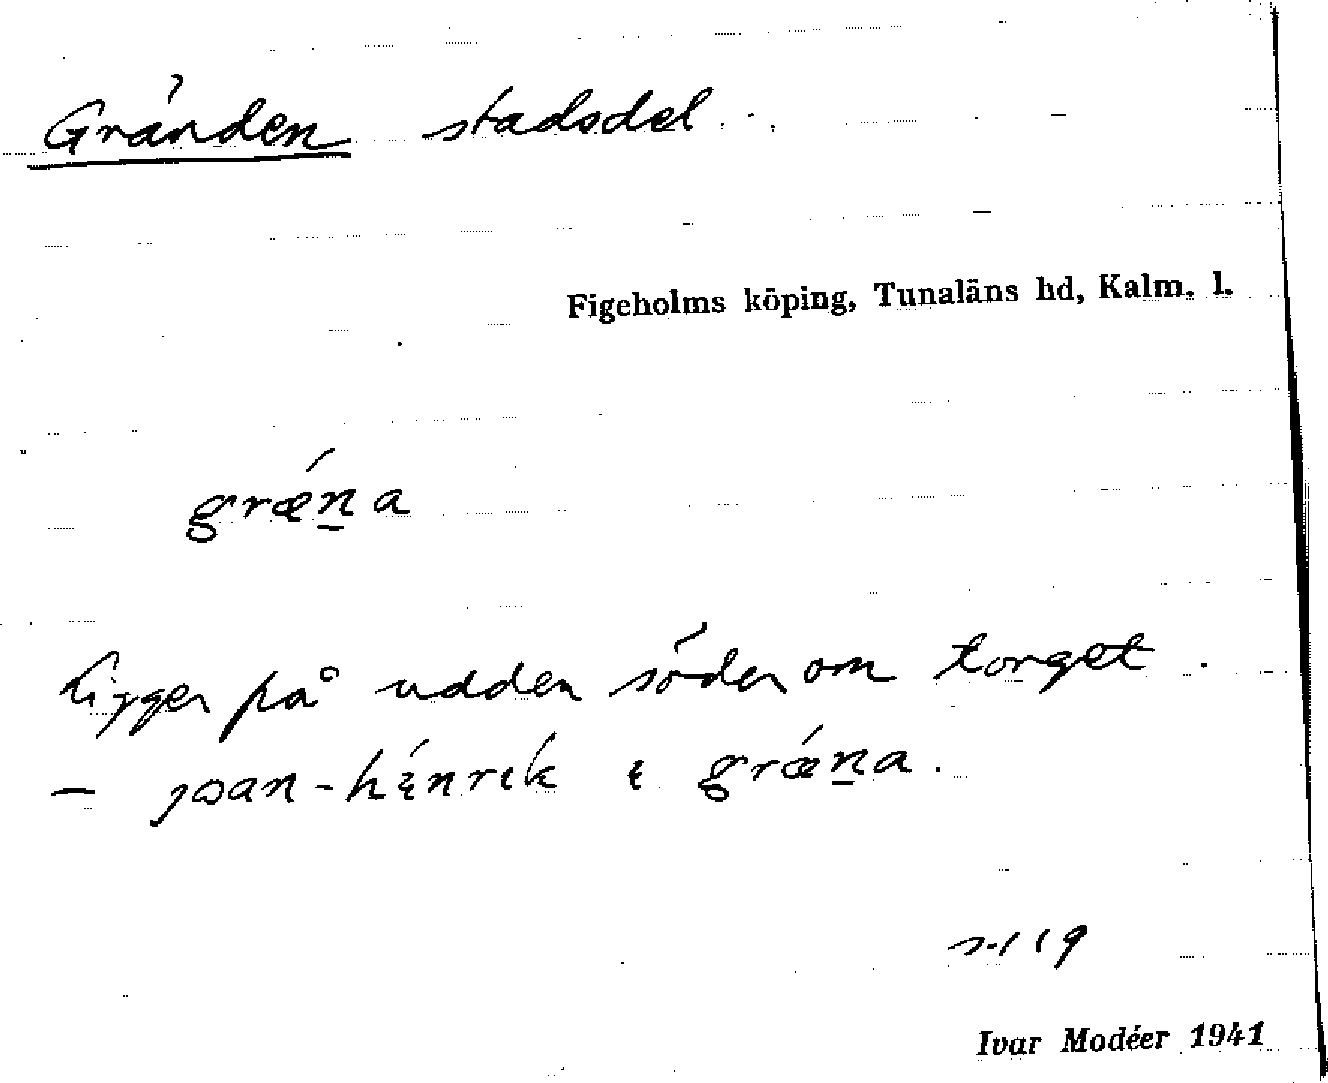 Gränden stadsdel
Figeholms köping, Tunaläns hd, Kalm. l.
grǽn̠a
ligger på udden söder om torget.
– joan-hénrik i grǽn̠a.
s. 119
Ivar Modéer 1941